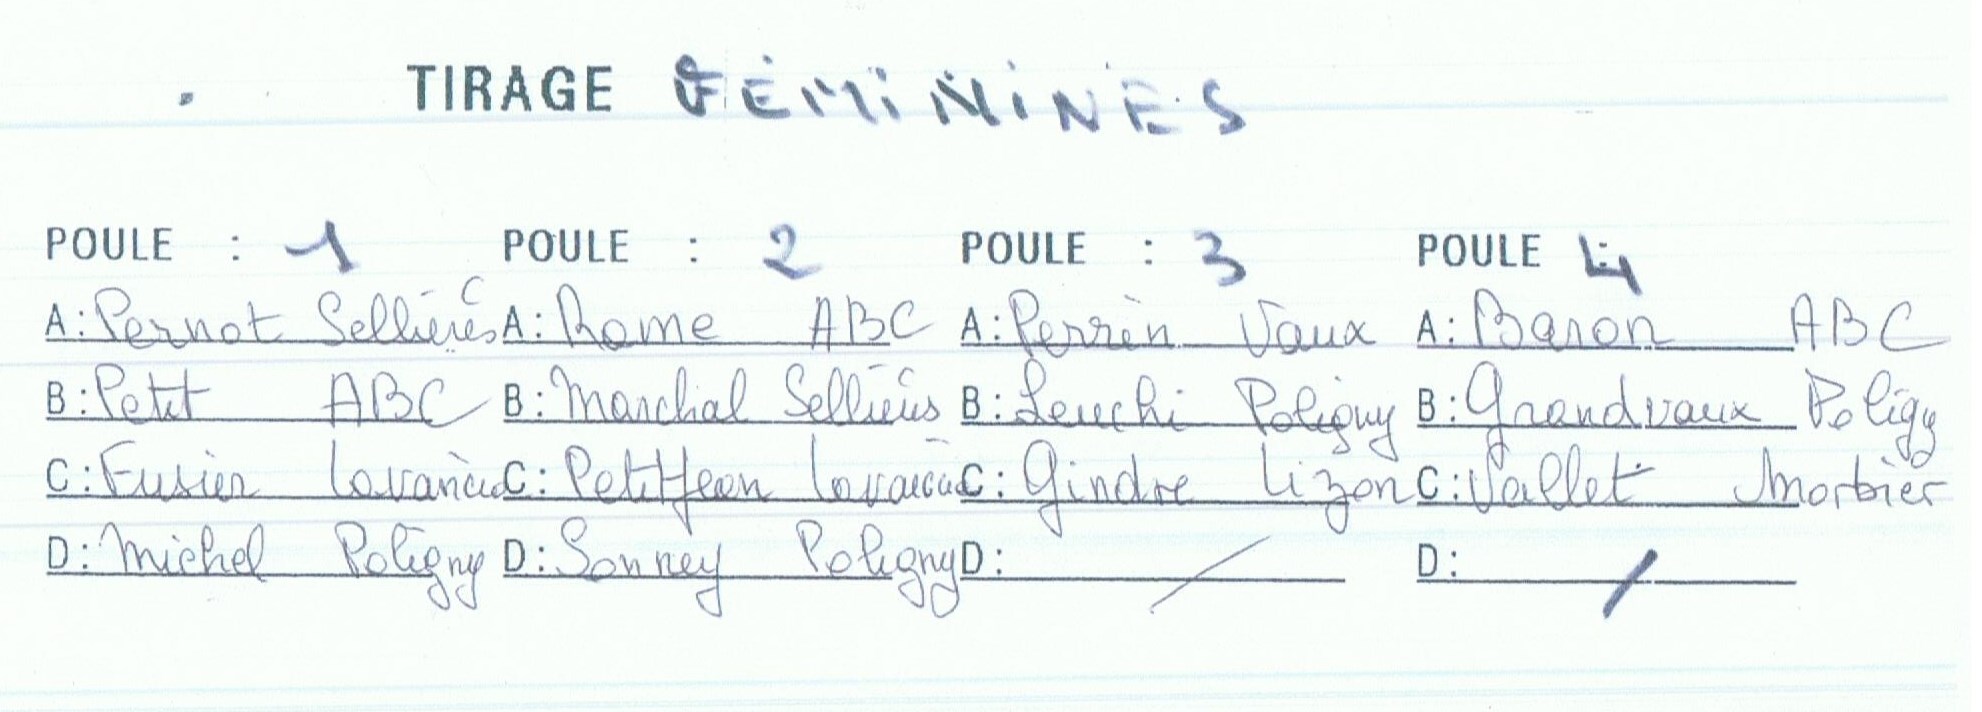 TIRAGE FÉMININES
POULE : 1 POULE : 2 POULE : 3 POULE : 4
A: Pernot Sellières A: Rome ABC A: Perrin Vaux A: Baron ABC
B: Petit ABC B: Marchal Sellières B: Leuchi Poligny B: Grandvaux Poligy
C: Fusier Lavancia C: Petitjean Lavancia C: Gindre Lizon C: Vallet Morbier
D: Michel Poligny D: Sonney Poligny D: / D: /